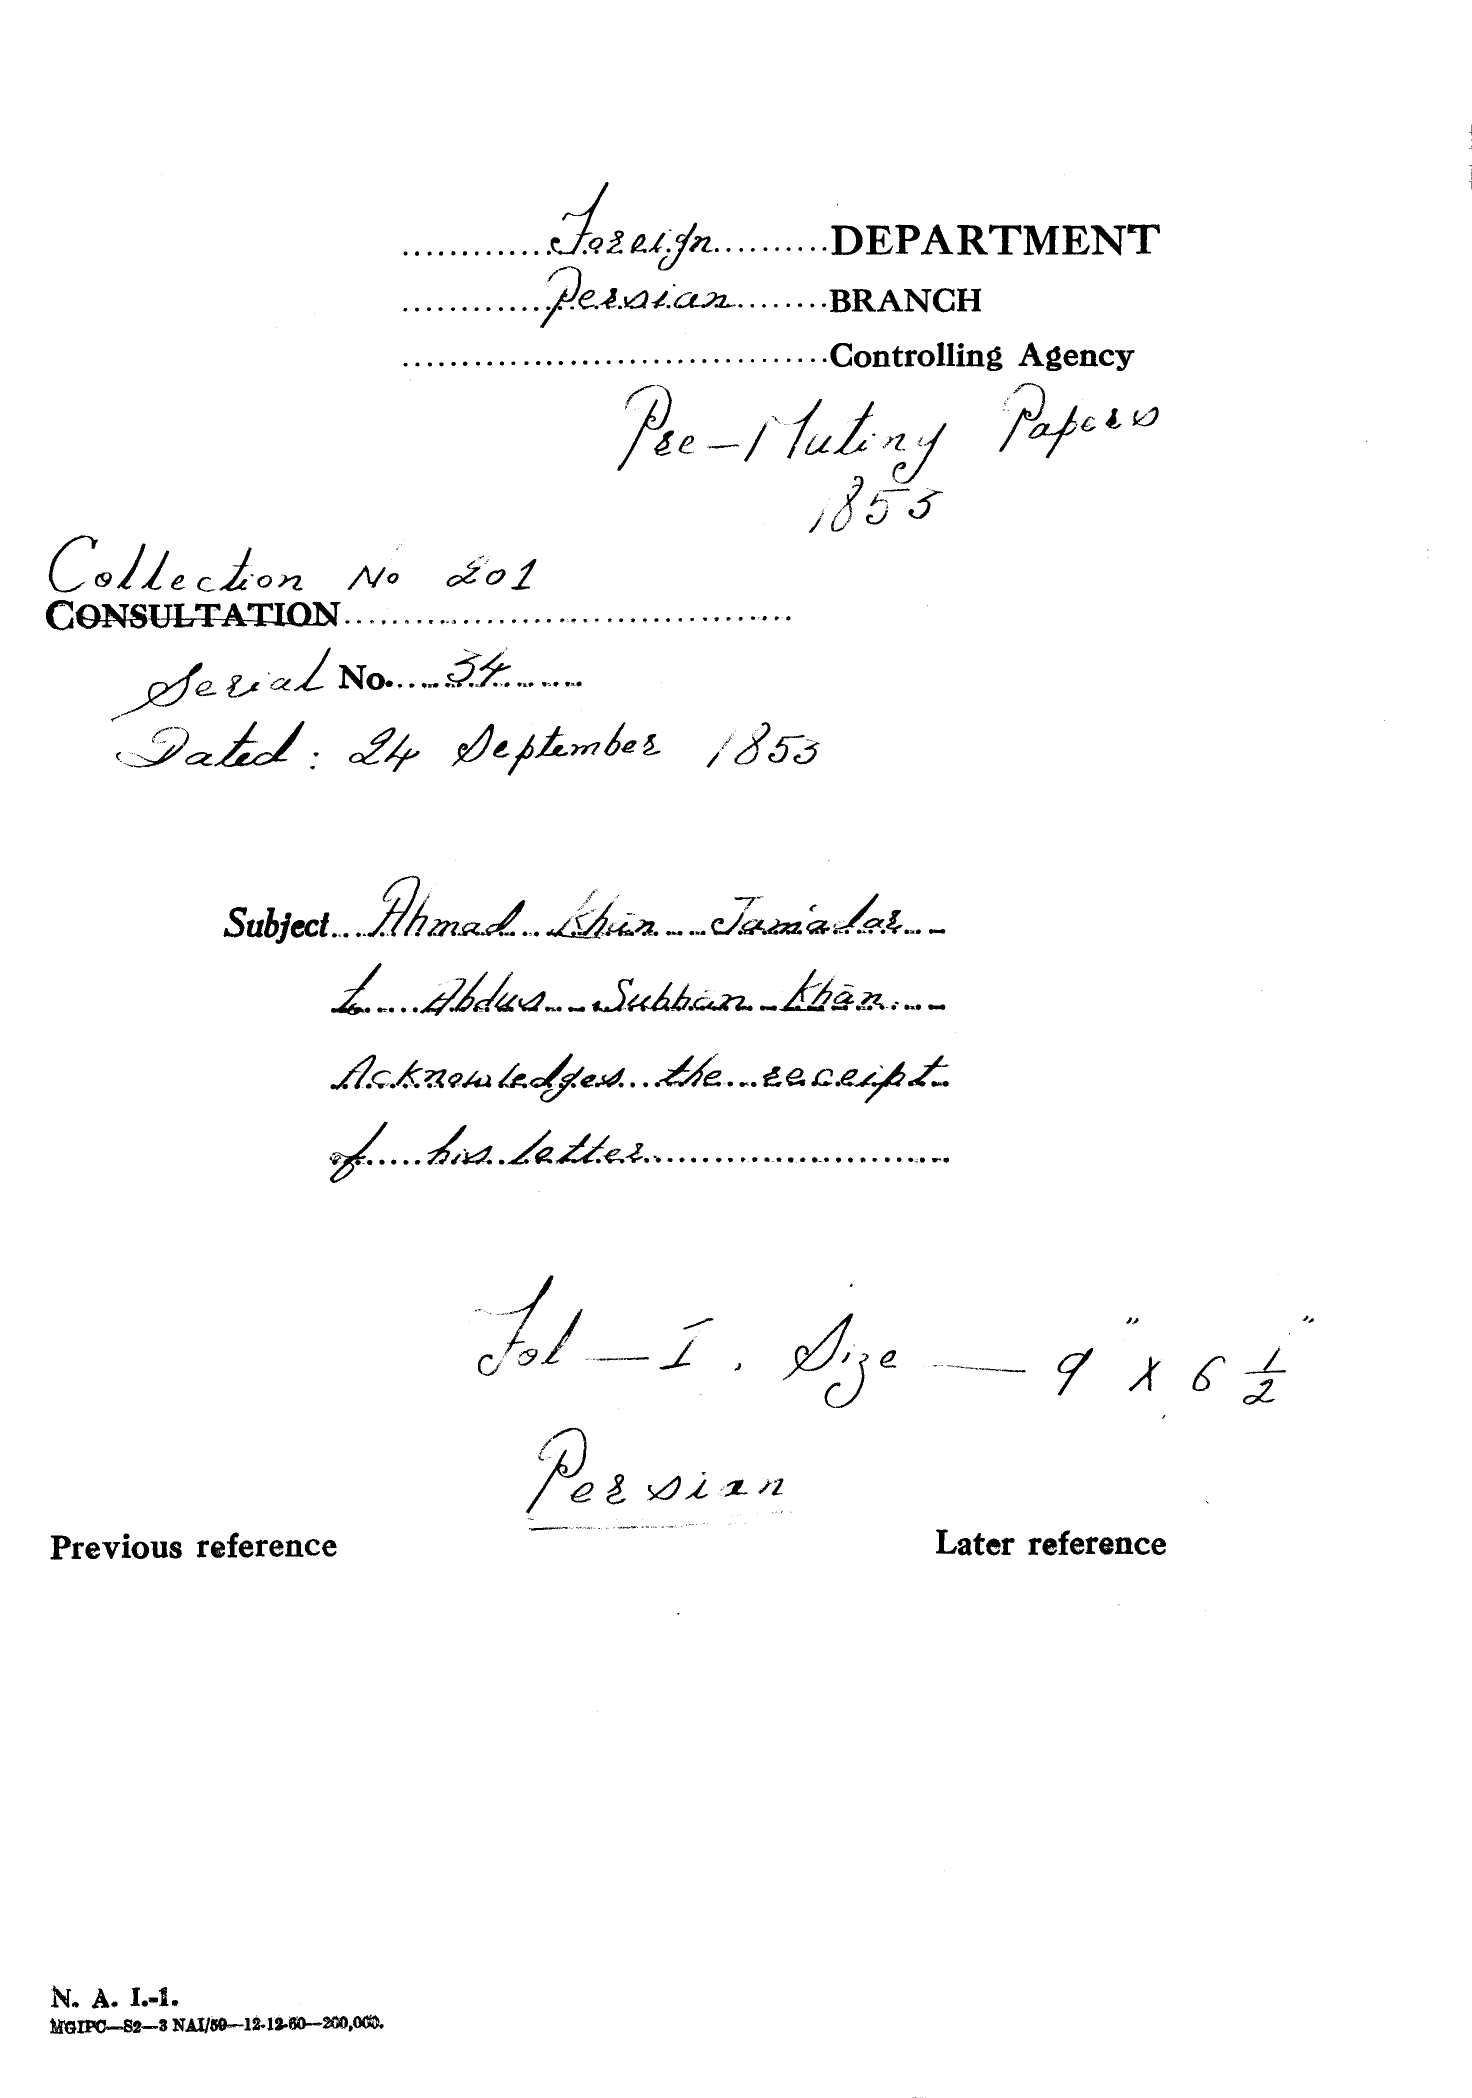 Foreign DEPARTMENT
Persian BRANCH
Controlling Agency
Pre-Mutiny Papers
1853
Collection No 201
CONSULTATION
Serial No. 34
Dated: 24 September 1853
Subject Ahmad Khān Jamādar
to Abdus Subhān Khān.
Acknowledges the receipt
of his letter
Fol — I. Size — 9" X 6 1/2"
Persian
Previous reference Later reference
N. A. I.-1.
MGIPC—S2—3 NAI/59—12-12-60—200,000.